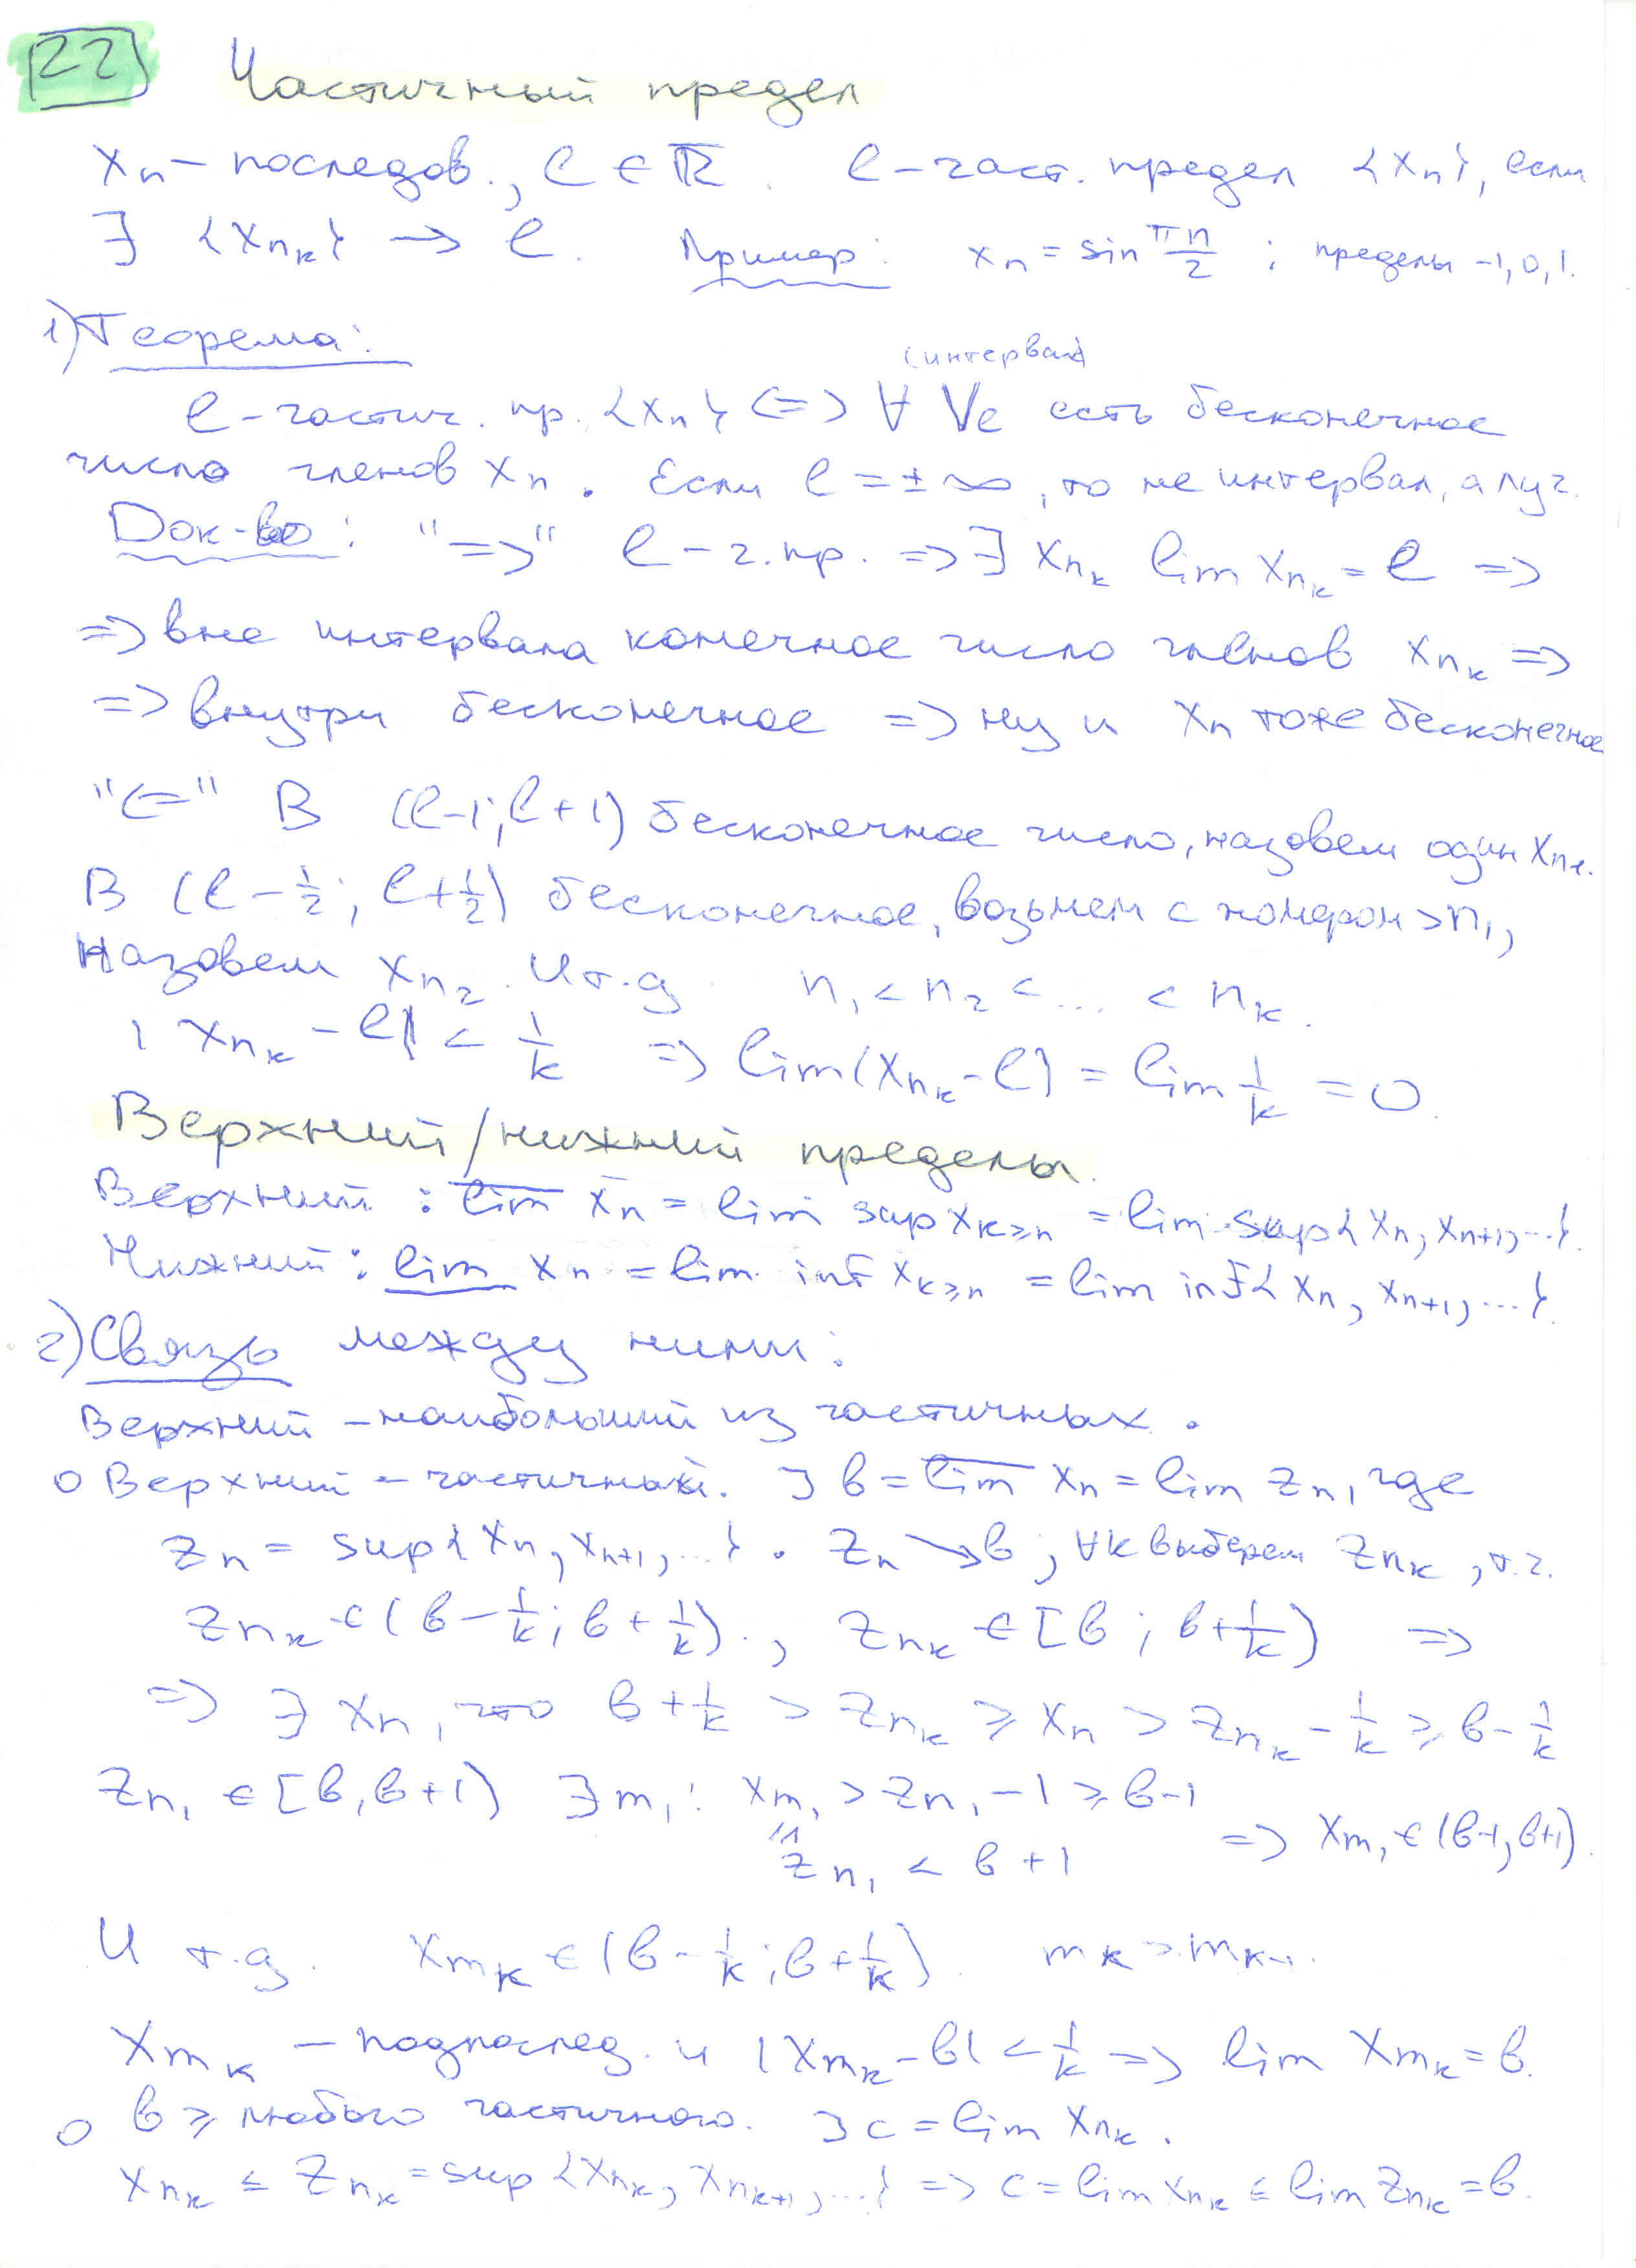 22 Частичный предел
xₙ – последов., l ∈ R̅. l – част. предел {xₙ}, если
∃ {xₙₖ} → l. Пример: xₙ = sin πn/2 ; пределы -1, 0, 1.
1) Теорема:
(интервал)
l – частич. пр. {xₙ} <=> ∀ Vₗ есть бесконечное
число членов xₙ. Если l = ±∞, то не интервал, а луч.
Док-во: "=>" l – ч. пр. => ∃ xₙₖ lim xₙₖ = l =>
=> вне интервала конечное число членов xₙₖ =>
=> внутри бесконечное => ну и xₙ тоже бесконечное
"<=" В (l-1; l+1) бесконечное число, назовем один xₙ₁.
В (l - 1/2; l + 1/2) бесконечное, возьмем с номером > n₁,
назовем xₙ₂. И т.д. n₁ < n₂ < ... < nₖ.
|xₙₖ - l| < 1/k => lim(xₙₖ - l) = lim 1/k = 0.
Верхний/нижний пределы.
Верхний: l̅i̅m̅ xₙ = lim sup xₖ≥ₙ = lim sup{xₙ, xₙ₊₁, ...}.
Нижний: l̲i̲m̲ xₙ = lim inf xₖ≥ₙ = lim inf{xₙ, xₙ₊₁, ...}.
2) Связь между ними:
Верхний – наибольший из частичных.
o Верхний – частичный. ∃ b = l̅i̅m̅ xₙ = lim zₙ, где
zₙ = sup{xₙ, xₙ₊₁, ...}. zₙ ↘ b; ∀k выберем zₙₖ, т.ч.
zₙₖ ∈ (b - 1/k; b + 1/k)., zₙₖ ∈ [b; b + 1/k) =>
=> ∃ xₙ, что b + 1/k > zₙₖ ≥ xₙ > zₙₖ - 1/k ≥ b - 1/k
zₙ₁ ∈ [b, b+1) ∃ m₁: xₘ₁ > zₙ₁ - 1 ≥ b-1
≤ zₙ₁ < b + 1 => xₘ₁ ∈ (b-1, b+1).
И т.д. xₘₖ ∈ (b - 1/k; b + 1/k). mₖ > mₖ₋₁.
xₘₖ – подпослед. и |xₘₖ - b| < 1/k => lim xₘₖ = b.
o b ≥ любого частичного. ∃ c = lim xₙₖ.
xₙₖ ≤ zₙₖ = sup{xₙₖ, xₙₖ₊₁, ...} => c = lim xₙₖ ≤ lim zₙₖ = b.